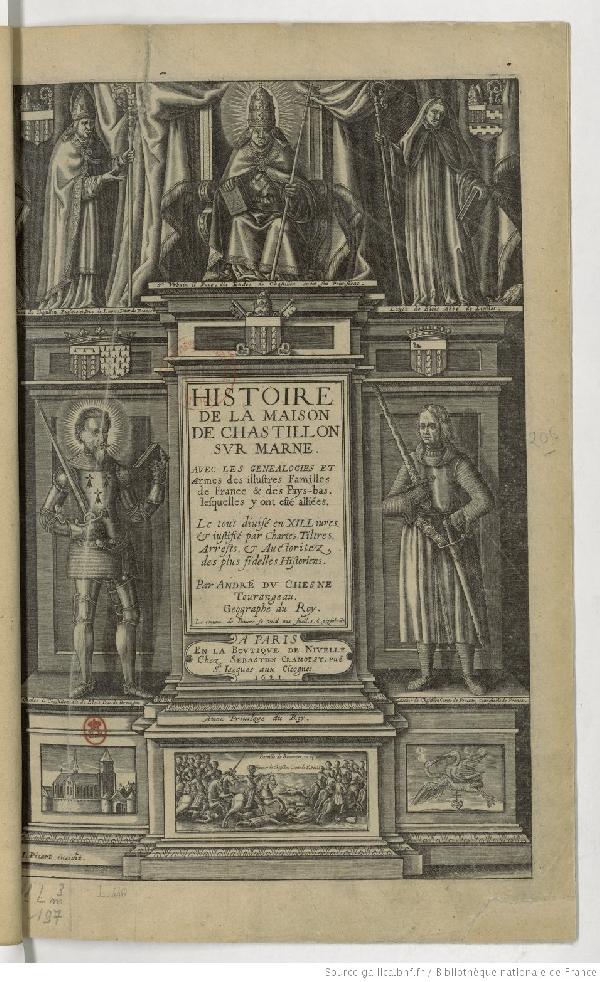 HISTOIRE
DE LA MAISON
DE CHASTILLON
SVR MARNE.
AVEC LES GENEALOGIES ET
Armes des illustres Familles
de France & des Pays-bas,
lesquelles y ont esté alliées.
Le tout divisé en XII. Livres,
& justifié par Chartes, Tiltres,
Arrests, & Auctoritez
des plus fidelles Historiens.
Par ANDRÉ DV CHESNE
Tourangeau,
Geographe du Roy.
A PARIS
EN LA BOVTIQUE DE NIVELLE
Chez SEBASTIEN CRAMOISY, rue
St Jacques aux Cicognes
1621
Avec Privilege du Roy.
I. PICART incidit.
L 3
m
197
205
Source gallica.bnf.fr / Bibliothèque nationale de France